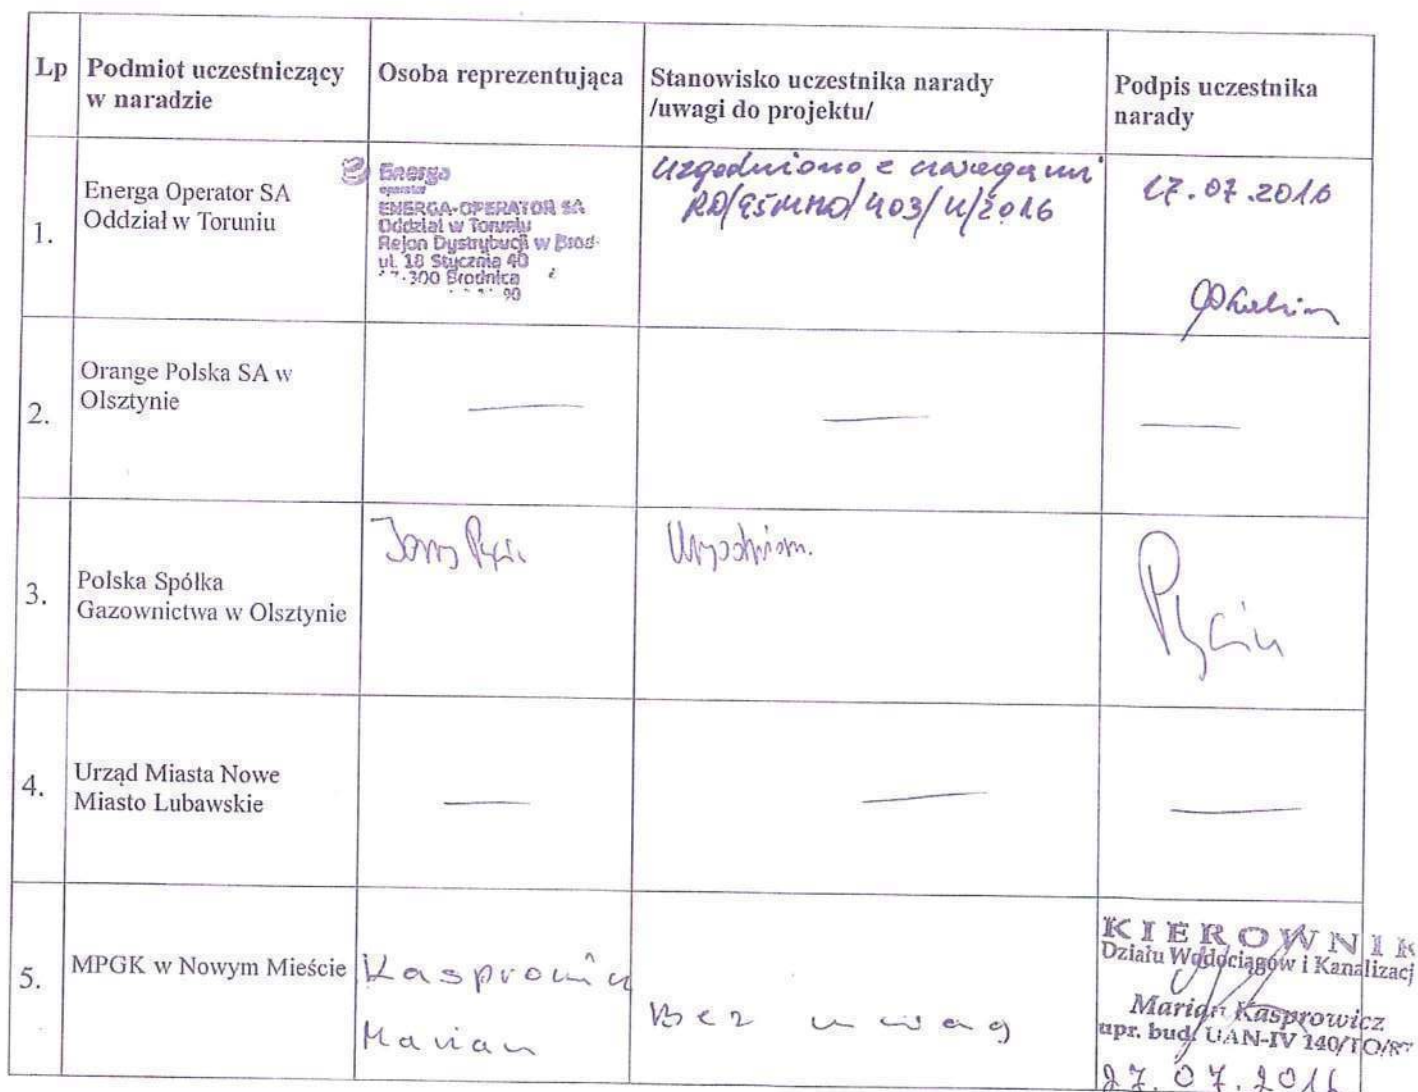 Lp
Podmiot uczestniczący
w naradzie
Osoba reprezentująca
Stanowisko uczestnika narady
/uwagi do projektu/
Podpis uczestnika
narady
1.
Energa Operator SA
Oddział w Toruniu
Energa
operator
ENERGA-OPERATOR SA
Oddział w Toruniu
Rejon Dystrybucji w Brod-
ul. 18 Stycznia 40
-300 Brodnica
90
Uzgodniono z uwagami
403/U/2016
27.07.2016
2.
Orange Polska SA w
Olsztynie
3.
Polska Spółka
Gazownictwa w Olsztynie
Uzgodniono.
4.
Urząd Miasta Nowe
Miasto Lubawskie
5.
MPGK w Nowym Mieście
Kasprowicz
Marian
Bez uwag
KIEROWNIK
Działu Wodociągów i Kanalizacj
Marian Kasprowicz
upr. bud. UAN-IV 140/TO/87
27.07.2016